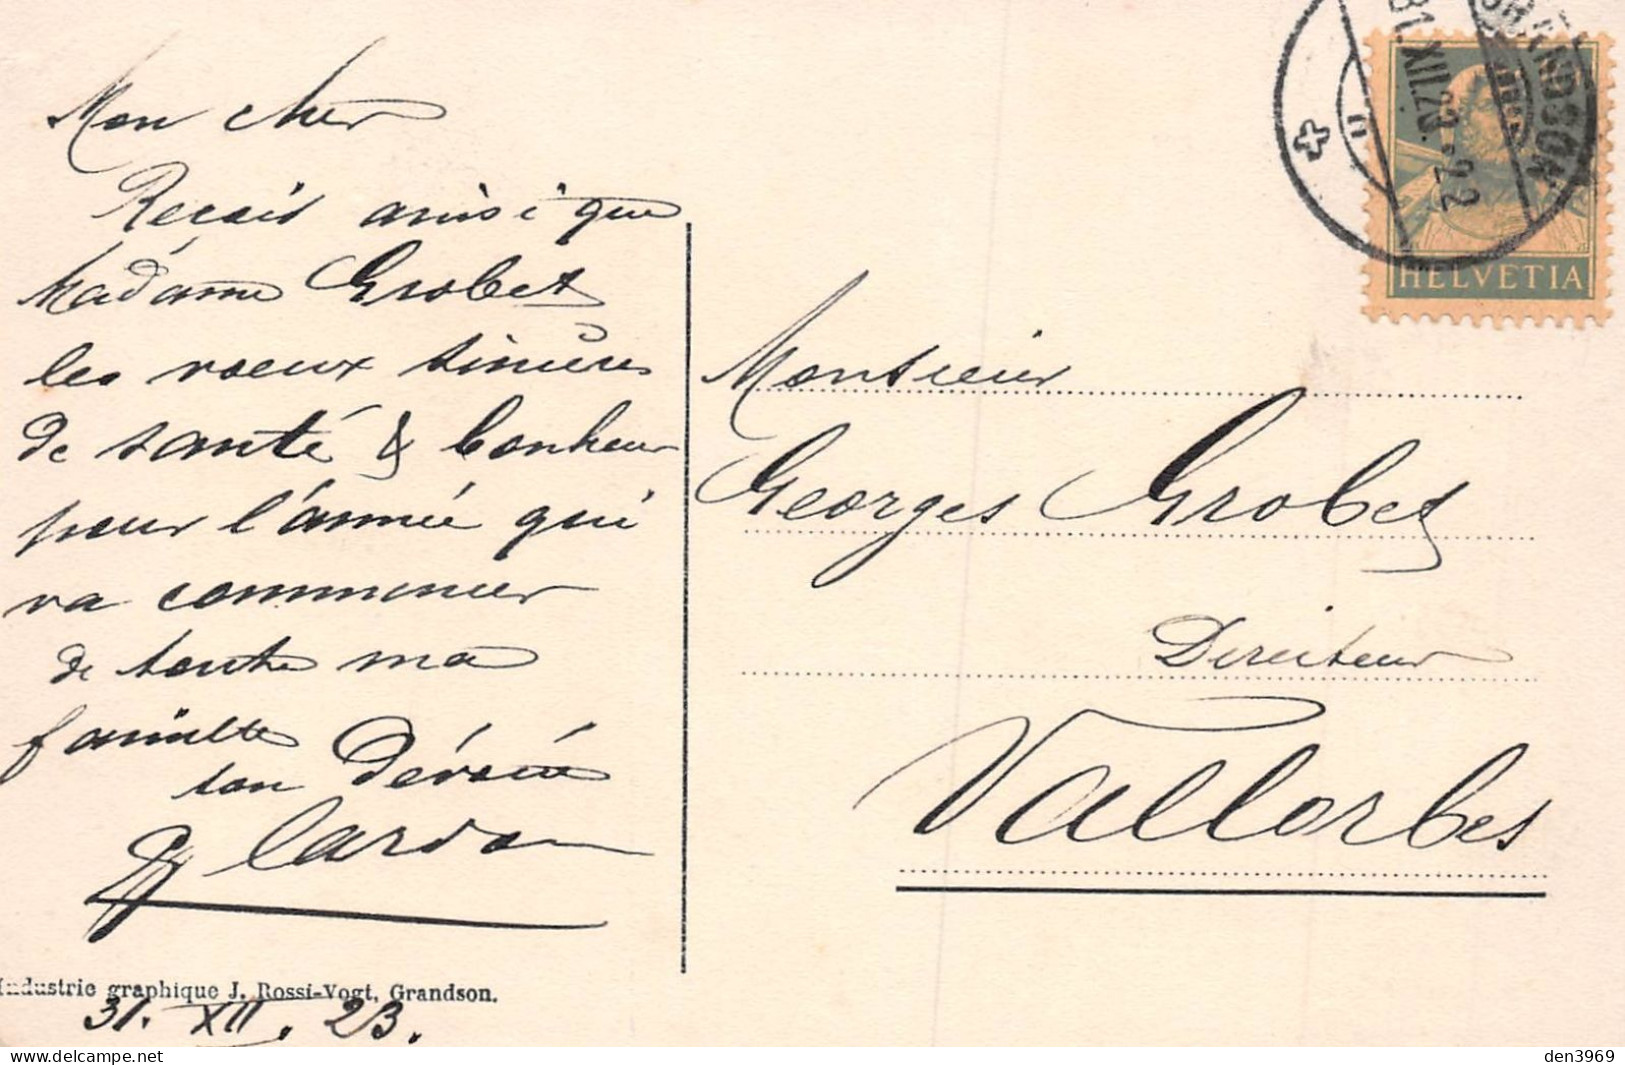 Mon cher
Reçois ainsi que
Madame Grobet
les voeux sincères
de santé & bonheur
pour l'année qui
va commencer
de toute ma
famille
ton dévoué
Cardon
Industrie graphique J. Rossi-Vogt, Grandson.
31. XII. 23.
GRANDSON
31.XII.23.-22
HELVETIA
Monsieur
Georges Grobet
Directeur
Vallorbes
den3969